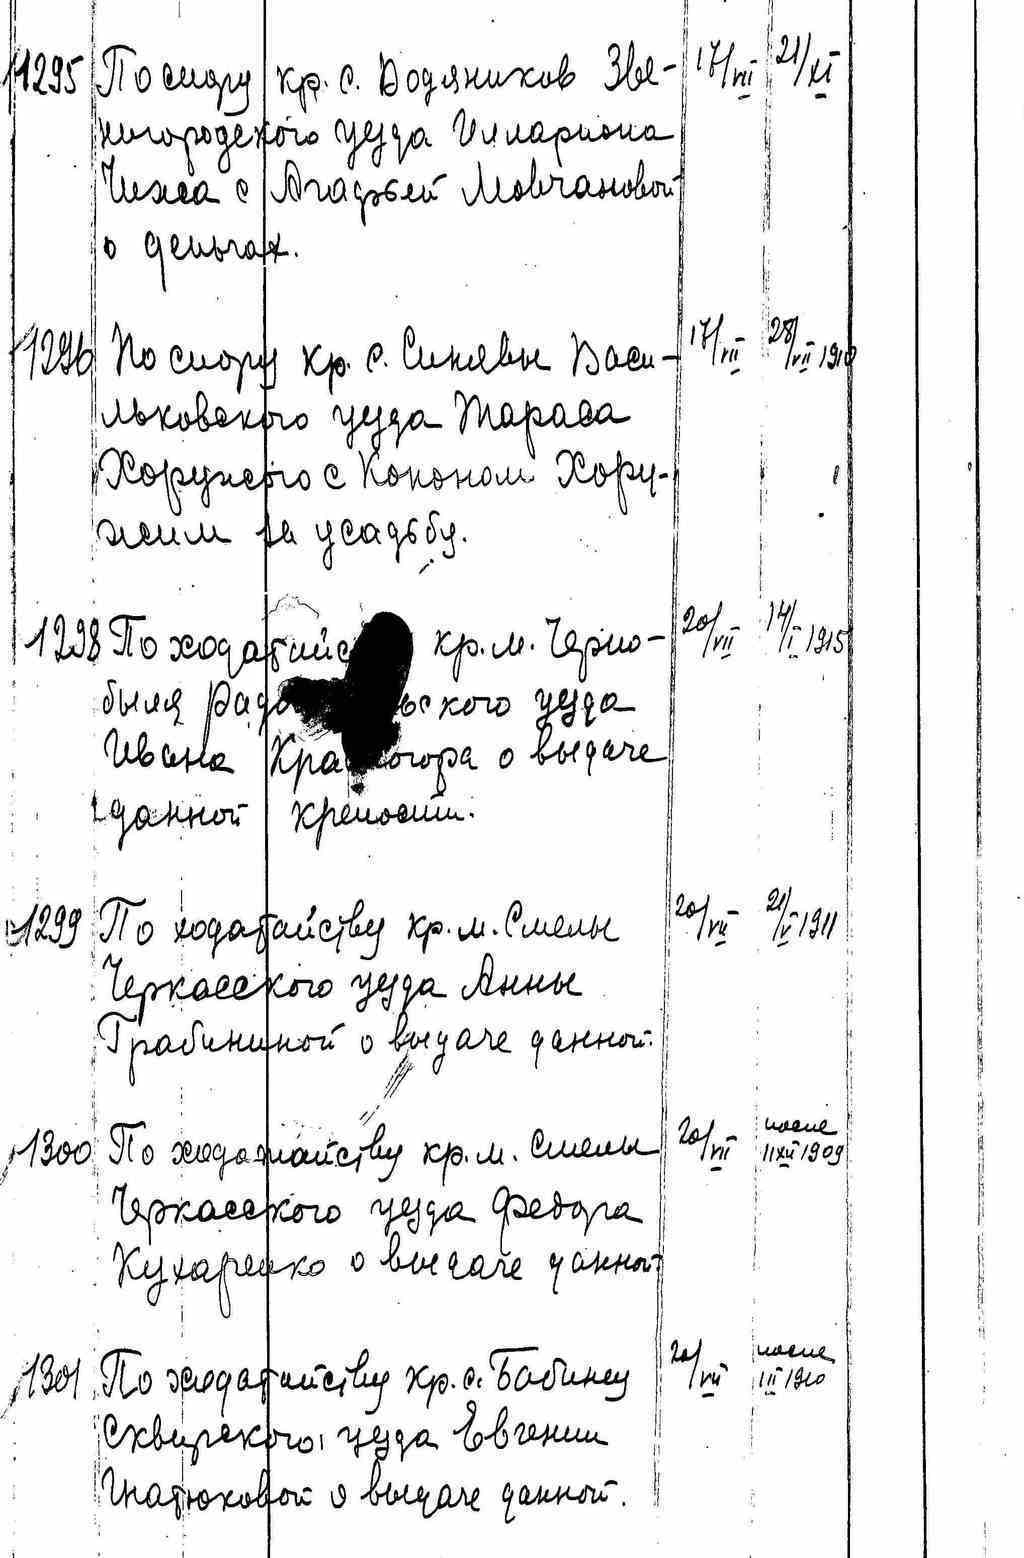 1295 По спору кр. с. Водяников Зве- 17/VII 21/XI
нигородского уезда Иллариона
Чижа с Агафьей Мовчановой
о деньгах.
1296 По спору кр. с. Синявы Васи- 17/VII 28/VII 1910
льковского уезда Тараса
Хоружего с Кононом Хору-
жим за усадьбу.
1298 По ходатайс кр. м. Черно- 20/VII 14/I 1915
быля Радо ьского уезда
Ивана Кра огора о выдаче
данной крепости.
1299 По ходатайству кр. м. Смелы 20/VII 21/V 1911
Черкасского уезда Анны
Грабининой о выдаче данной.
1300 По ходатайству кр. м. Смелы 20/VII после 11 XII 1909
Черкасского уезда Федора
Кухаренко о выдаче данной
1301 По ходатайству кр. с. Бабинец 20/VII после III 1910
Сквирского уезда Евгении
Гнатюковой о выдаче данной.